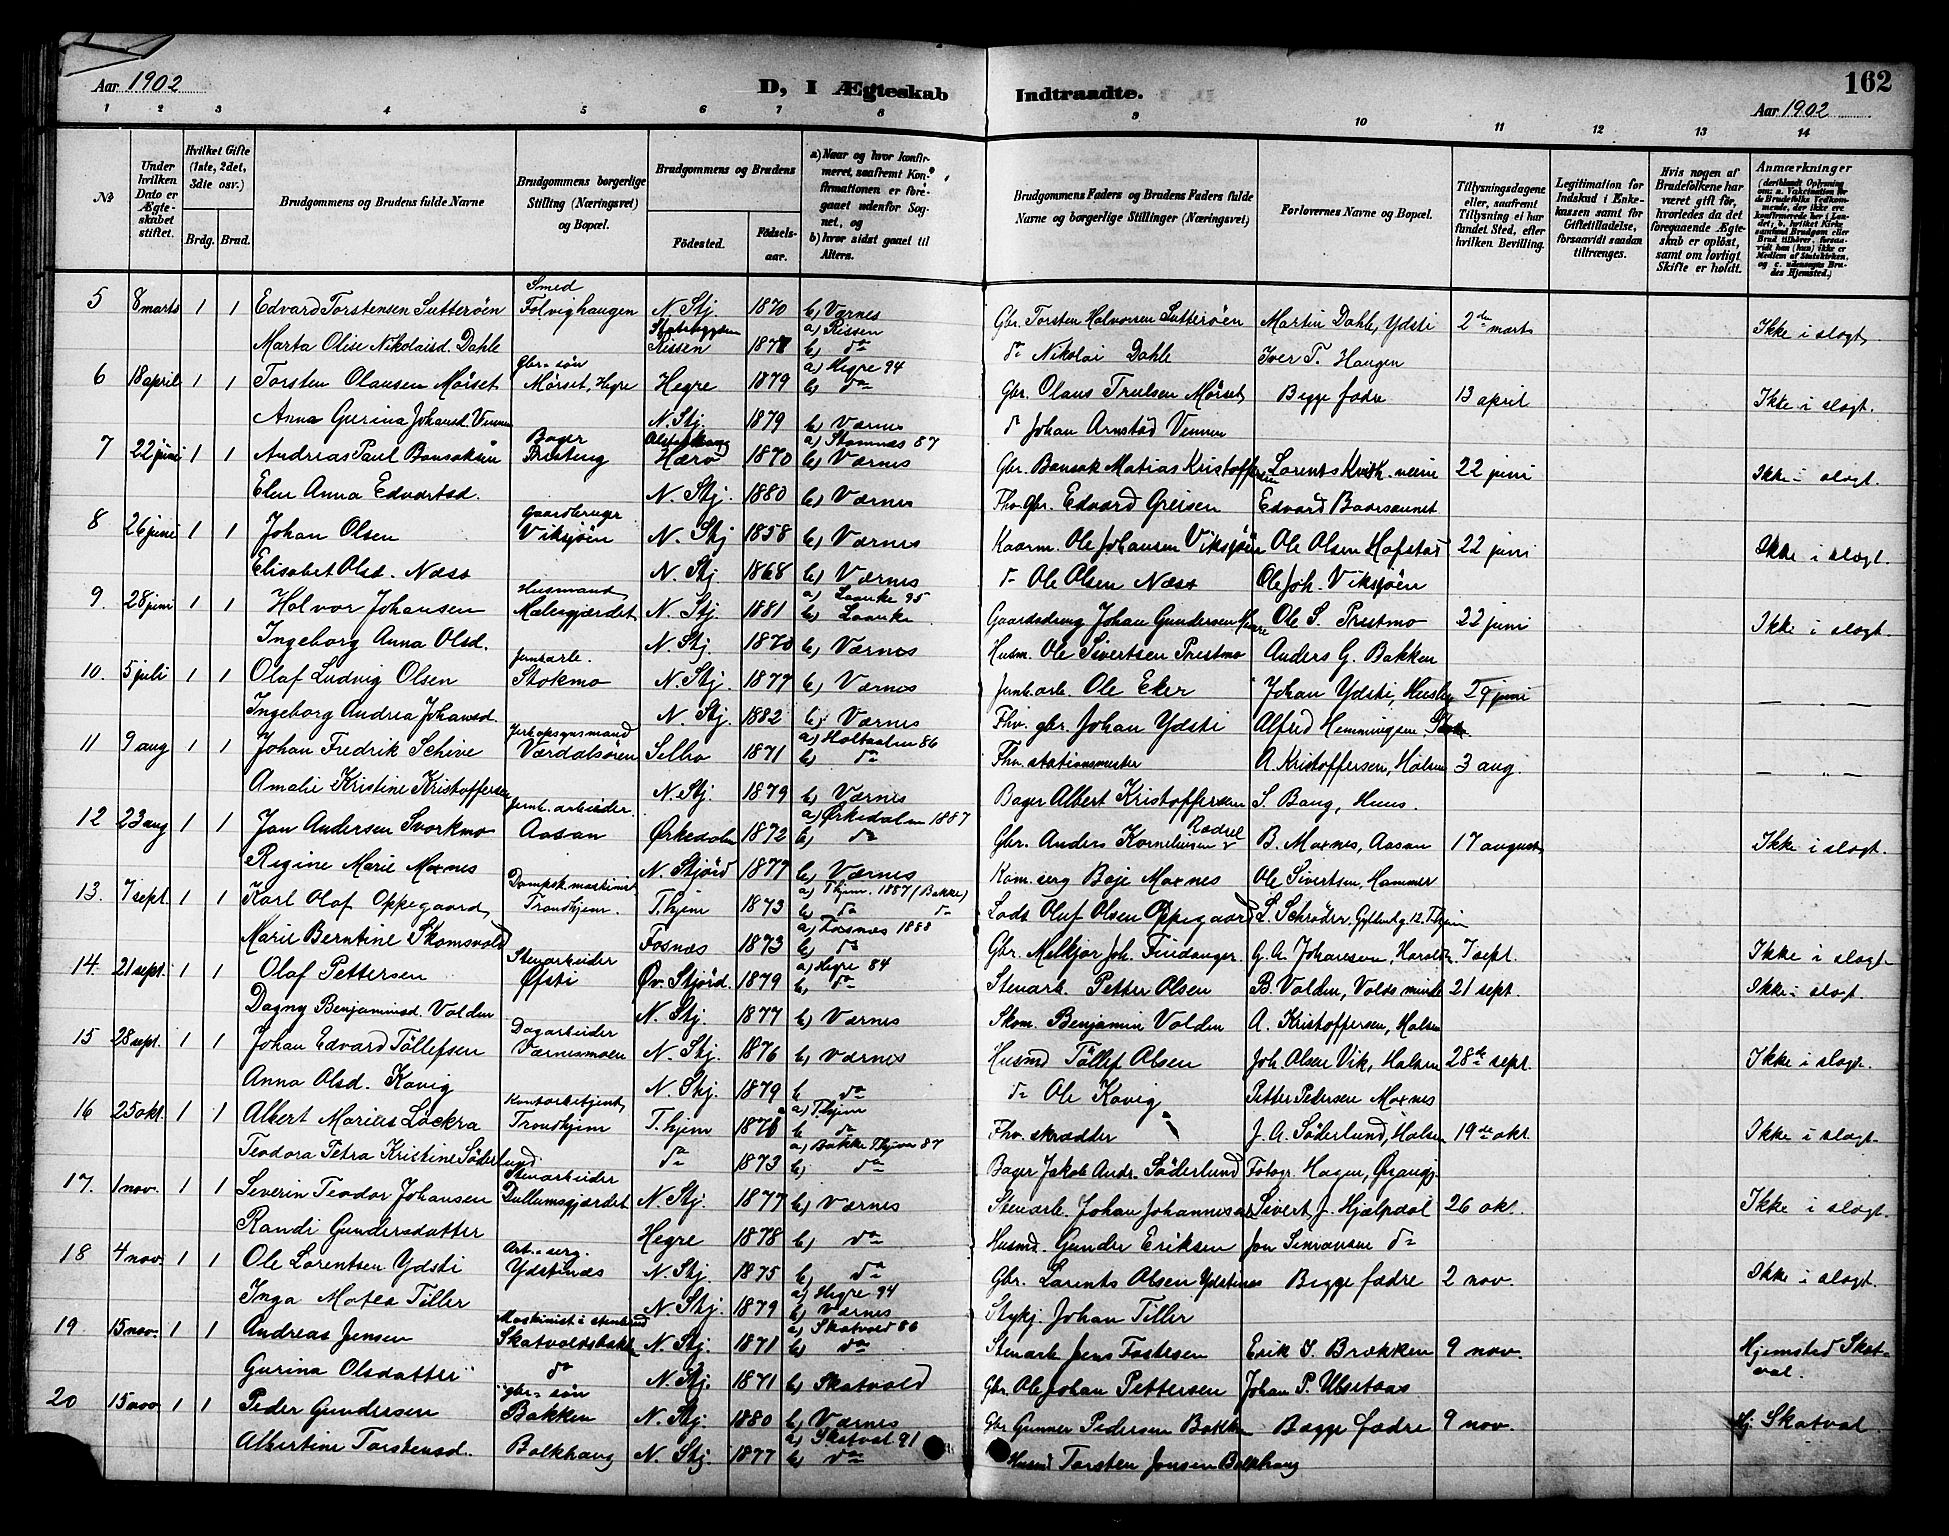 Aar 1902
D, I Ægteskab Indtraadte.
162
Aar 1902
1 2 3 4 5 6 7 8 9 10 11 12 13 14
№
Under hvilken Dato er Ægteskabet stiftet.
Hvilket Gifte (1ste, 2det, 3die osv.)
Brdg. Brud.
Brudgommens og Brudens fulde Navne
Brudgommens borgerlige Stilling (Næringsvei) og Bopæl.
Brudgommens og Brudens
Fødested. Fødselsaar.
a) Naar og hvor konfirmeret, saafremt Konfirmationen er foregaaet udenfor Sognet, og b) hvor sidst gaaet til Alters.
Brudgommens Faders og Brudens Faders fulde Navne og borgerlige Stillinger (Næringsvei)
Forlovernes Navne og Bopæl.
Tillysningsdagene eller, saafremt Tillysning ei har fundet Sted, efter hvilken Bevilling.
Legitimation for Indskud i Enkekassen samt for Giftetilladelse, forsaavidt saadan tiltrænges.
Hvis nogen af Brudefolkene har været gift før, hvorledes da det foregaaende Ægteskab er opløst, samt om lovligt Skifte er holdt.
Anmærkninger (deriblandt Oplysning om: a. Vakcination for de Brudefolks Vedkommende, der ikke ere konfirmerede her i Landet; b. hvilket Kirkesamfund Brudgom eller Brud tilhører, forsaavidt han (hun) ikke er Medlem af Statskirken, og c. udensogns Brudes Hjemsted.)
5 8 marts 1 1 Edvard Torstensen Sutterøen Smed Folvighaugen N. Stj. 1870 b) Værnes Gbr. Torsten Halvorsen Sutterøen Martin Dahle, Ydsti 2den marts Ikke i slægt
Marta Olise Nikolaisd. Dahle Rissen a) Rissen b) do do Nikolai Dahle Iver T. Haugen
6 18 april 1 1 Torsten Olausen Mørset Gbr. søn Mørset, Hegre Hegre 1879 a) Hegre 94 b) do Gbr. Olaus Trulsen Mørset Begge fædre 13 april Ikke i slægt
Anna Gurina Johansd. Vennen N. Stj. 1879 b) Værnes do Johan Arnstad Vennen
7 22 juni 1 1 Andreas Paul Bonsaksen Bager Herø 1870 a) Stamnes 87 b) Værnes Gbr. Bonsak Matias Kristoffersen 22 juni Ikke i slægt.
Elen Anna Edvartsd. N. Stj. 1880 b) Værnes Fhv. Gbr. Edvard Greisen Edvard Baarsaunet
8 26 juni 1 1 Johan Olsen Gaardbruger Viksjøen N. Stj 1858 b) Værnes Kaarm. Ole Johansen Viksjøen Ole Olsen Hofstad 22 juni Ikke i slægt.
Elisabet Olsd. Næss N. Stj 1868 b) Værnes do Ole Olsen Næss Ole Joh. Viksjøen
9. 28 juni 1 1 Halvor Johansen Husmand Mælengjærdet N. Stj. 1881 a) Laanke 95 b) Laanke Gaardsdreng Johan Gundersen Ole S. Prestmo 22 juni Ikke i slægt.
Ingeborg Anna Olsd. N. Stj. 1870 b) Værnes Husm. Ole Sivertsen Prestmo Anders G. Bakken
10. 5 juli 1 1 Olaf Ludvig Olsen Jernbarb. Stokmo N. Stj. 1877 b) Værnes Jernb. arb. Ole Eker Johan Ydsti, Husby 29 juni — „ —
Ingeborg Andrea Johansd. N. Stj. 1882 b) Værnes Fhv. gbr. Johan Ydsti Alfred Hemmingsen
11 9 aug 1 1 Johan Fredrik Schive Jerkopsynsmand Værdalsøren Selbo 1871 a) Holtaalen 86 b) do Fhv. stationsmester A. Kristoffersen, Halsen 3 aug. — „ —
Amalie Kristine Kristoffersen N. Stj. 1879 b) Værnes Bager Albert Kristoffersen S. Bang, Huus.
12 23 aug 1 1 Jon Andersen Svorkmo Jernb. arbeider Aasan Ørkedalen 1872 a) Ørkedalen 1887 b) do Gbr. Anders Korneliusen B. Moxnes, Aasan 17 august Ikke i slægt.
Regine Marie Moxnes N. Stjørd 1877 b) Værnes Kom. serg Boje Moxnes Ole Sivertsen, Hammer
13. 7 sept. 1 1 Karl Olaf Oppegaard Dampsk. maskinist Trondhjem. T.hjem 1873 a) Thjem. 1887 (Bakke) b) do do Lods Oluf Olsen Oppegaard L. Schrøder, Gyllenbg. 12. T.hjem
Marie Berntine Skomsvold Fosnæs 1873 a) Fosnæs 1888 b) do Gbr. Melkjor Joh. Findanger G. A. Johansen 7 sept. Ikke i slægt
14. 21 sept. 1 1 Olaf Pettersen Stenarbeider Øfsti Øv. Stjørd. 1879 a) Hegre 84 b) do Stenarb. Petter Olsen B. Valden, Voldsminde 21 sept. Ikke i slægt.
Dagny Benjaminsd. Valden N. Stj. 1877 b) Værnes Skom. Benjamin Valden A. Kristoffersen, Halsen
15 28 sept. 1 1 Johan Edvard Tøllefsen Dagarbeider Værnesmoen N. Stj. 1876 b) Værnes Husmd Tøllef Olsen Joh. Olsen Vik, Halsen 28de sept. Ikke i slægt.
Anna Olsd. Kavig N. Stj. 1879 b do do Ole Kavig Petter Pedersen Moxnes
16 25 okt. 1 1 Albert Marius Løckra Kontorbetjent Trondhjem T.hjem 1876 a) T.hjem b do Fhv. skrædder J. A. Söderlund, Halsen 19de okt. Ikke i slægt
Teodora Petra Kristine Söderlund do 1873 a) Bakke Thjem 87 b) do Bager Jakob Andr. Söderlund Fotogr. Hagen
17. 1 nov. 1 1 Severin Teodor Johansen Stenarbeider Dullumsgjærdet N. Stj. 1877 b) Værnes Stenarb. Johan Johannesen Sivert J. Hjælpdal 26 okt. Ikke i slægt.
Randi Gundersdatter Hegre 1878 b) do Husmd. Gunder Eriksen Jon do
18 4 nov. 1 1 Ole Lorentsen Ydsti Art. serg. Ydstinæs N. Stj. 1875 b) do Gbr. Lorents Olsen Ydstines Begge fædre 2 nov. Ikke i slægt.
Inga Matea Tiller N. Stj. 1879 a) Hegre 94 b) Værnes Stykj. Johan Tiller
19 15 nov. 1 1 Andreas Jensen Maskinist i stenbrud Skatvoldsbakk N. Stj. 1871 a) Skatvold 86 b) do Stenarb Jens Fastesen Erik S. Brækken 9 nov. Hjemsted Skatval.
Gurina Olsdatter do N. Stj. 1871 b) Skatvold Gbr. Ole Johan Pettersen Johan P. Ulsetaas
20 15 nov 1 1 Peder Gundersen gbr. søn Bakken N. Stj. 1880 b) Værnes Gbr Gunner Pedersen Bakken Begge fædre 9 nov. Hj. Skatval.
Albertine Torstensd. Balkhaug N. Stj. 1877 a) Skatval 91 b) do Husmd Torsten Jonsen Balkhaug